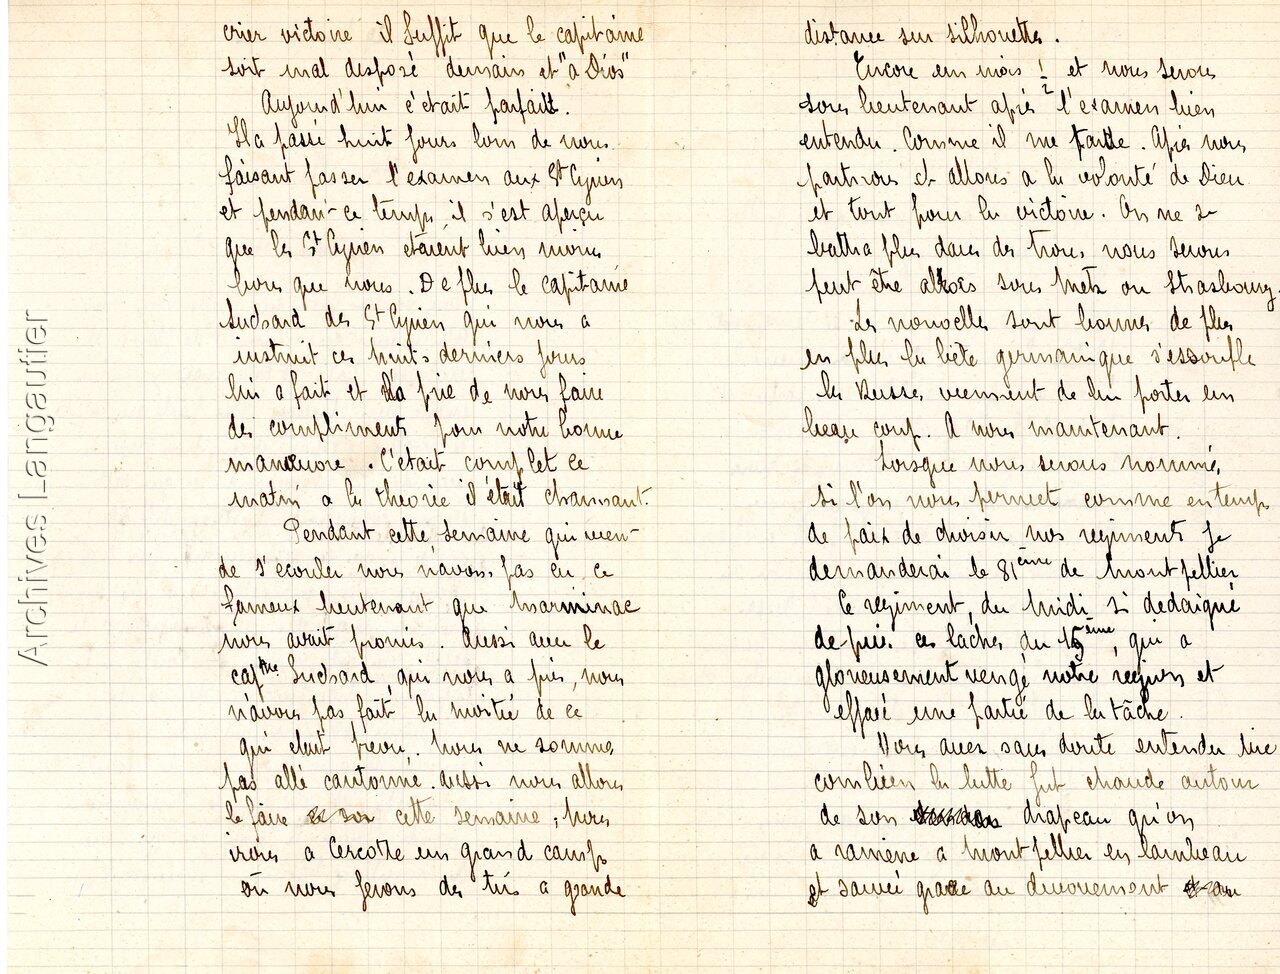 crier victoire il suffit que le capitaine
soit mal disposé demain et "a Dios"
Aujourd'hui c'était parfait.
Il a passé huit jours loin de nous
faisant passer l'examen aux St Cyrien
et pendant ce temps il s'est aperçu
que les St Cyrien etaient bien moins
bons que nous. De plus le capitaine
Suchard des St Cyrien qui nous a
instruit ces huits derniers jours
lui a fait et l'a prie de nous faire
des compliments pour notre bonne
manœuvre. C'était complet ce
matin a la theorie il était charmant.
Pendant cette semaine qui vien-
de s'écouler nous n'avons pas eu ce
fameux lieutenant que Marminac
nous avait promis. Aussi avec le
capne Suchard, qui nous a pris, nous
n'avons pas fait la moitié de ce
qui etait prevu. Nous ne somme
pas allé cantonné. Aussi nous allons
le faire cette semaine; nous
irons a Cercotte en grand camp
où nous ferons des tirs a grande
distance sur silhouettes.
Encore un mois !? et nous serons
sous lieutenant après l'examen bien
entendu. Comme il me tarde. Après nous
partirons et allons a la volonté de Dieu
et tout pour la victoire. On ne se
battra plus dans des trous, nous serons
peut être alors sous Metz ou Strasbourg.
Les nouvelles sont bonnes de plus
en plus la bête germanique s'essoufle
les Russes viennent de lui porter un
beau coup. A nous maintenant.
Lorsque nous serons nommé,
si l'on nous permet comme en temps
de paix de choisir nos regiments je
demanderai le 81ème de Montpellier
Ce regiment du Midi si dedaigné
depuis ces lâches du 15ème, qui a
glorieusement vengé notre region et
effacé une partie de la tâche.
Vous avez sans doute entendu lire
combien la lutte fut chaude autour
de son drapeau qu'on
a ramené a Montpellier en lambeau
et sauvé grace au devouement
Archives Langautier